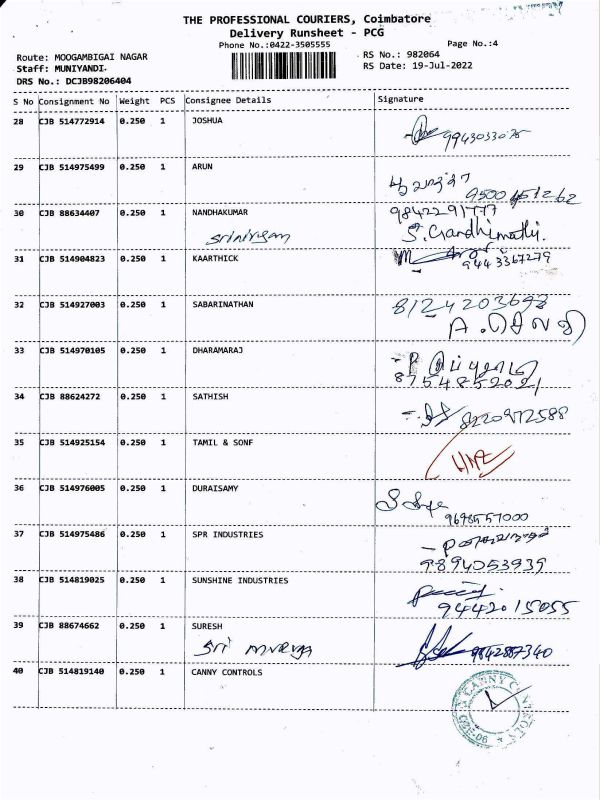 THE PROFESSIONAL COURIERS, Coimbatore
Delivery Runsheet - PCG
Phone No.:0422-3505555
Page No.:4
Route: MOOGAMBIGAI NAGAR
RS No.: 982064
Staff: MUNIYANDI.
RS Date: 19-Jul-2022
DRS No.: DCJB98206404
S No Consignment No Weight PCS Consignee Details Signature
28 CJB 514772914 0.250 1 JOSHUA
29 CJB 514975499 0.250 1 ARUN
30 CJB 88634407 0.250 1 NANDHAKUMAR 9842291777
S. Gandhimathi.
31 CJB 514904823 0.250 1 KAARTHICK
9443367279
32 CJB 514927003 0.250 1 SABARINATHAN 8124203698
33 CJB 514970105 0.250 1 DHARAMARAJ
8754852021
34 CJB 88624272 0.250 1 SATHISH 8220972588
35 CJB 514925154 0.250 1 TAMIL & SONF
36 CJB 514976005 0.250 1 DURAISAMY
9698557000
37 CJB 514975486 0.250 1 SPR INDUSTRIES
9894053939
38 CJB 514819025 0.250 1 SUNSHINE INDUSTRIES
9442015055
39 CJB 88674662 0.250 1 SURESH
Sri muruga 9842887340
40 CJB 514819140 0.250 1 CANNY CONTROLS
CANNY CONTROLS